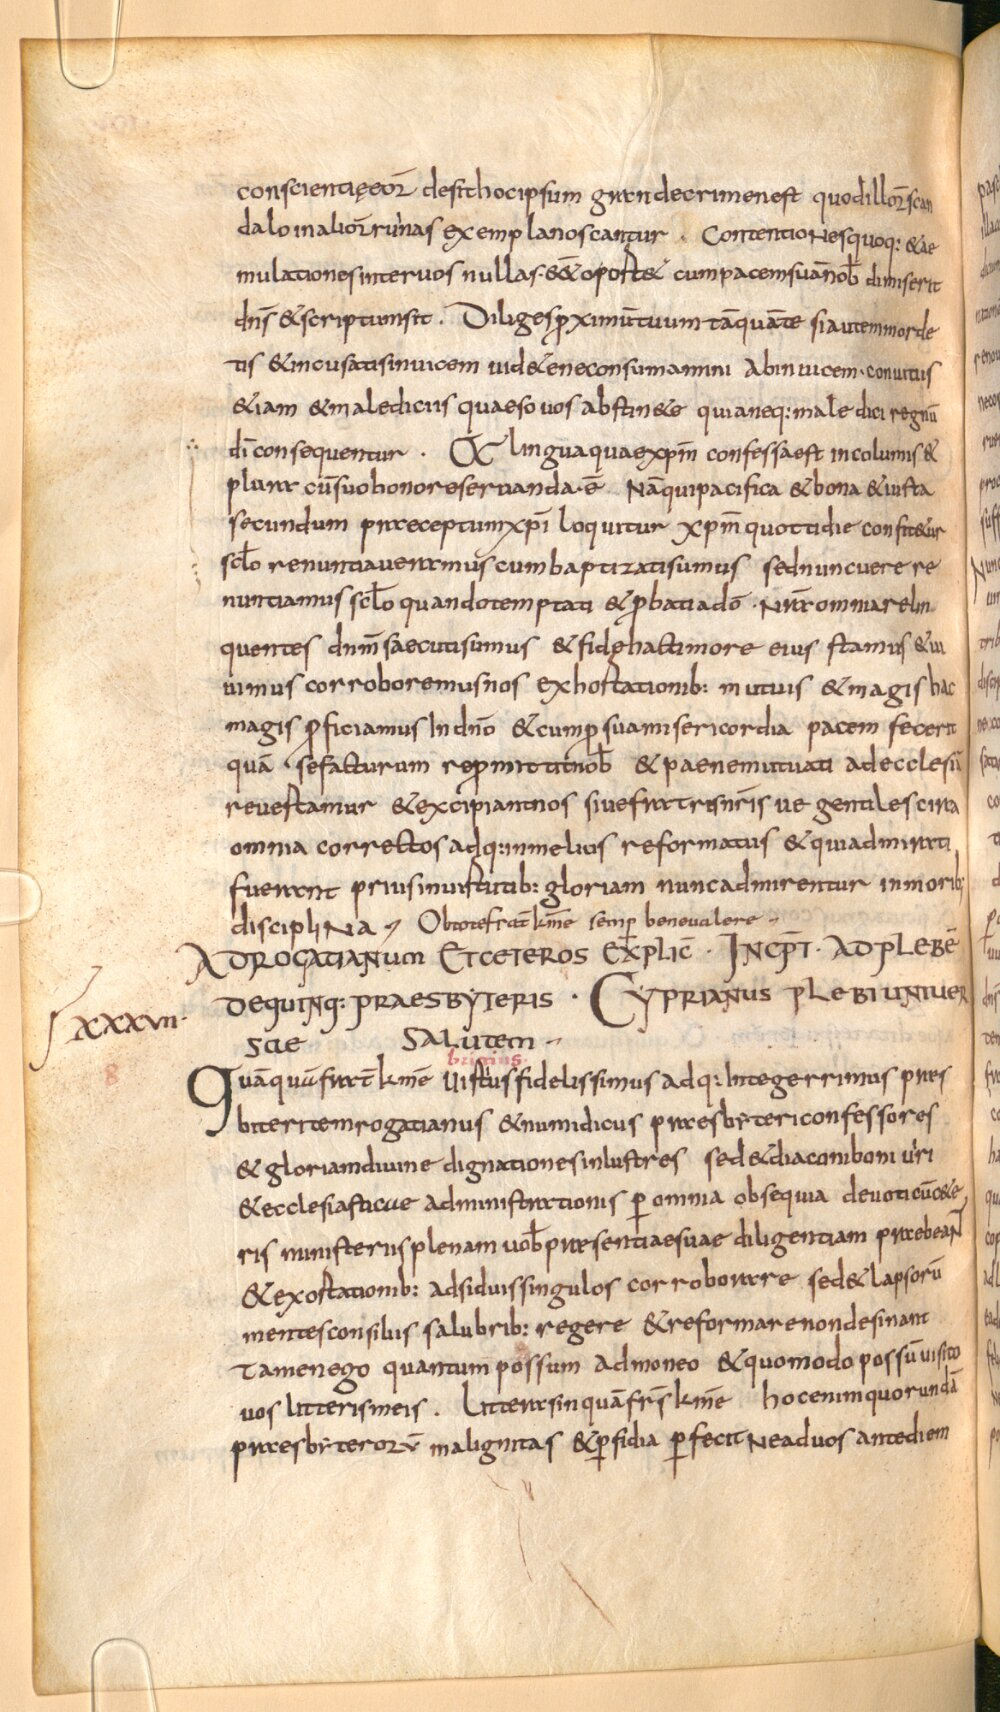 conscientięeoꝝ̄ desithocipsum grandecrimenest quodilloꝝ̄scan
daloinalioꝝ̄ruinas exemplanoscantur . Contentionesquoq: &ae
mulationesinteruos nullas·e͞e͞ oport& cumpacemsuānob̄ dimiserit
dn̄s &scriptumsit . Diligesꝓximūtuum tāquāte siautemmorde
tis &incusatisinuicem uid&eneconsumamini Abinuicem·conuitiis
&iam &malediciis quaesouos abstin&e quianeq:male dici regnū
dī consequentur . Et linguaquaexp̄m confessaest incolumis &
plura cūsuohonoreseruanda·ē Nāquipacifica &bona &iusta
secundum praeceptumxp̄i loquitur xp̄m quottidie confit&ur
scl̄o renuntiaueramuscumbaptizatisumus sednuncuere re
nuntiamus scl̄o quandotemptati &ꝓbatiadō · Nr̄aomniarelin
quentes dnm̄saecutisumus &fidehactimore eius stamus &ui
uimus corroboremusnos exhortationib: mutuis &magis hac
magis ꝓficiamus Indnō &cump̱suamisericordia pacem fecerit
quā · sefacturum reꝓmittitnob̄ &paenemutuati adecclesiā
reuertamur &excipiantnos siuefratresnr̄is ue gentiles circa
omnia correctos adq:inmelius reformatus &quiadmirati
fuerant priusinuirtutib: gloriam nuncadmirentur inmorib;
disciplina ⁊ Obtotefrat̄ km̄e semp̱ beneualere ~
Adrogatianum Etceteros Explic̄ · Incp̄t · adplebē
dequinq: praesbyteris · Cyprianus plebiuniuer
XXXVII·
sae Salutem ~
8
Quāquūfrat̄ km̄e Uirtusfidelissimus adq:Integerrimus praes
biteritemrogatianus &numidicus praesbyteri confessores
&gloriamdiuine dignationesinlustres sed&diaconiboni uiri
&ecclesiasticae administrationis p̱ omnia obsequia deuoticūc&e
ris ministeriisplenam uob̄praesentiaesuae diligentiam praebeant
&exortationib: adsiduissingulos corroborare sed&lapsorū
mentesconsiliis salubrib: regere &reformarenondesinant
Tamenego quantum possum admoneo &quomodo possū uisito
uos litterismeis . Litterasinquāfrs̄ km̄e hocenimquorundā
praesbyteroꝝ malignitas &p̱fidia p̱fecit Neaduos antediem